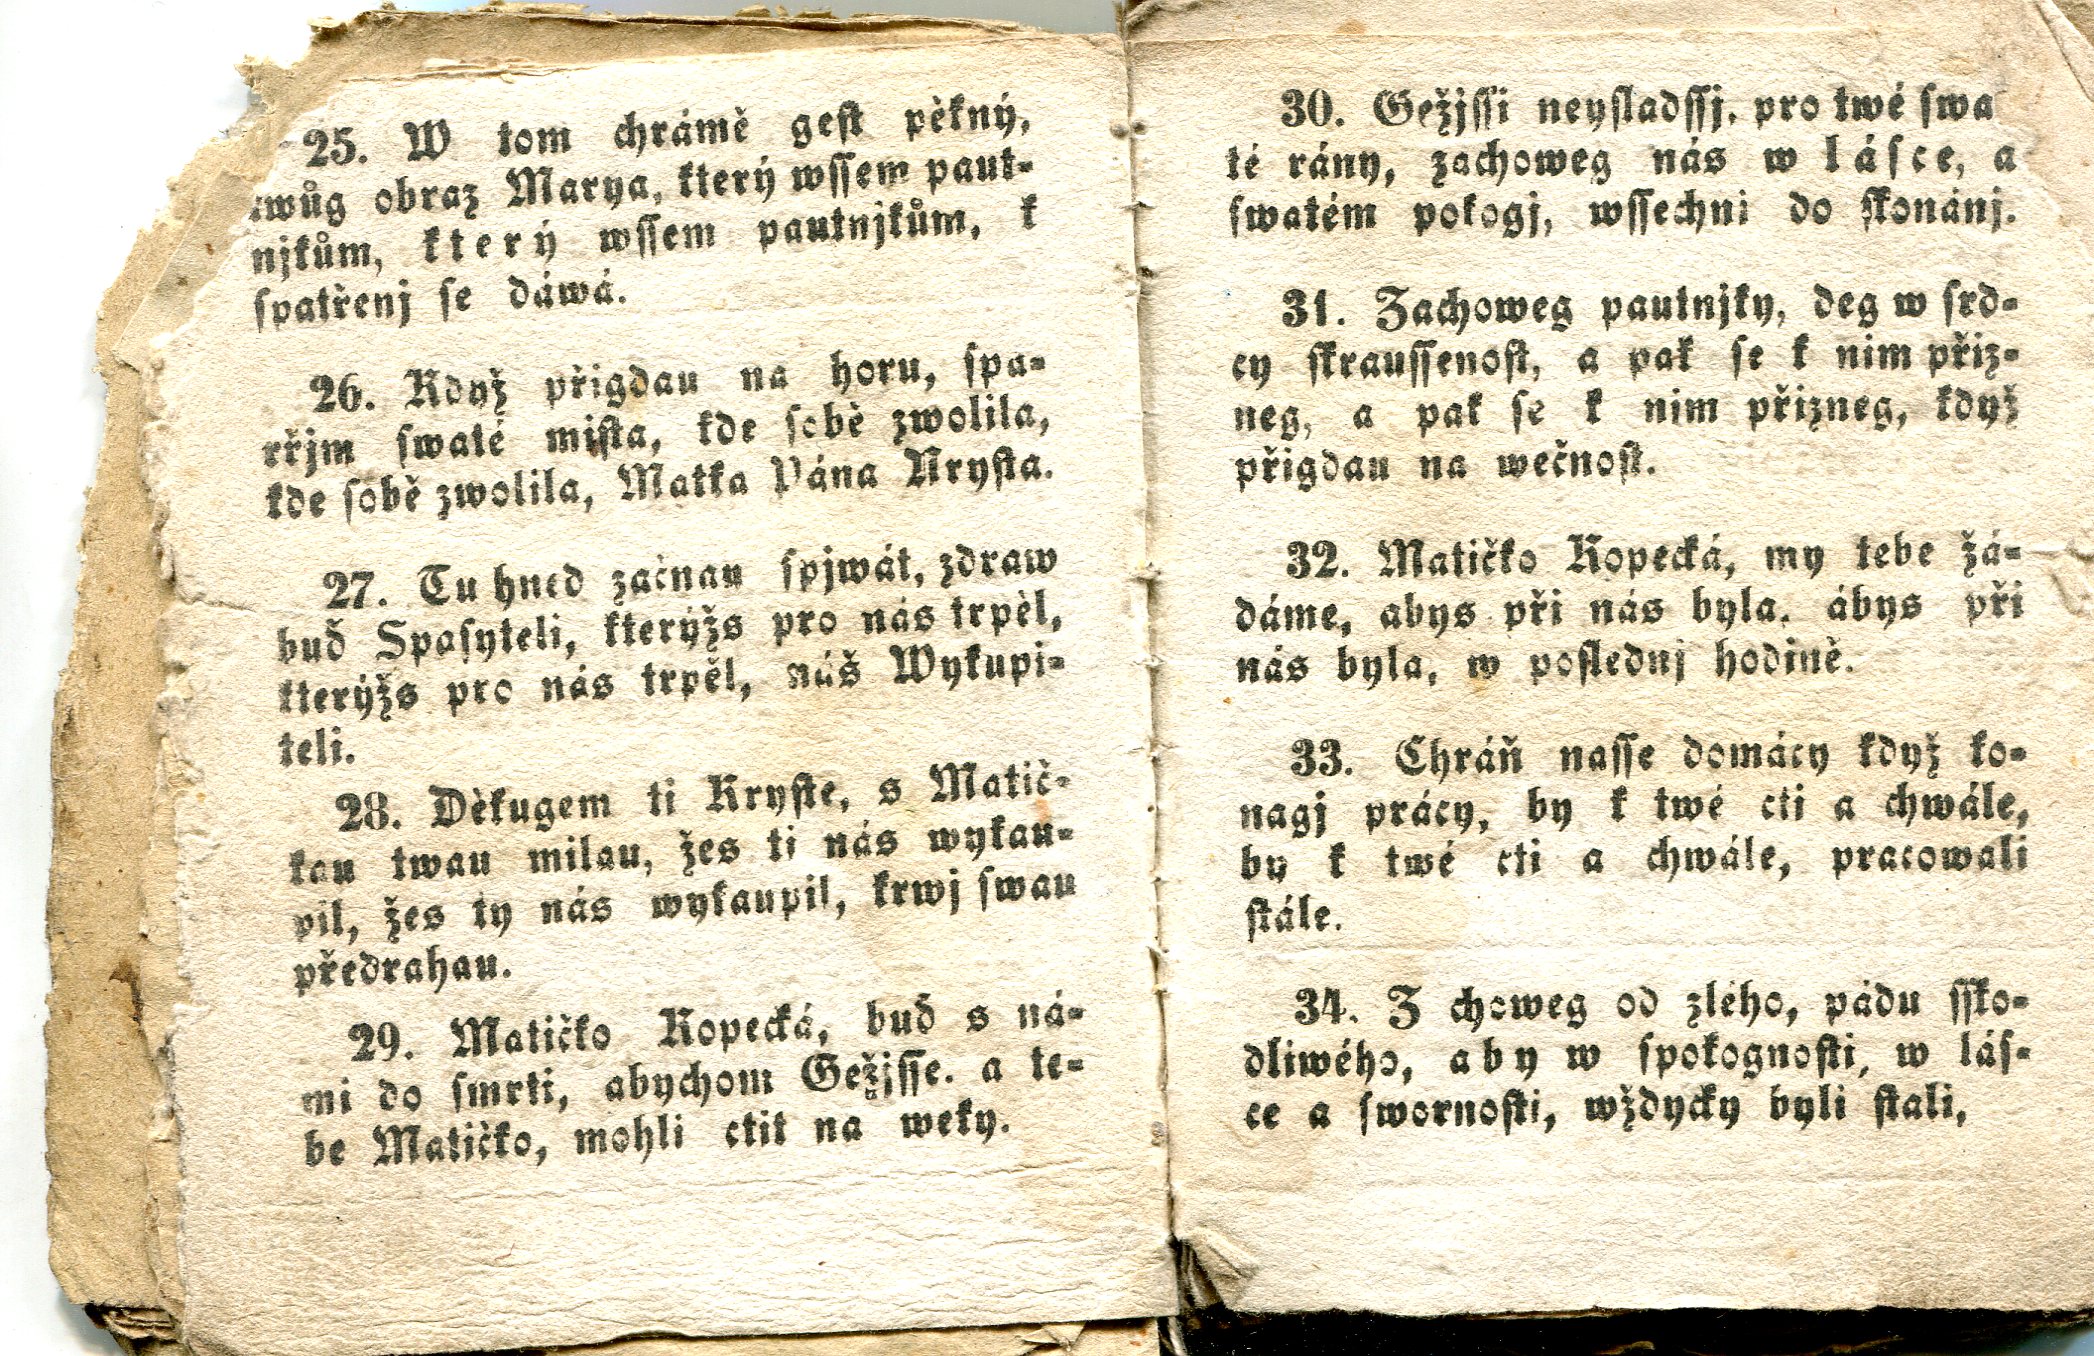 25. W tom chrámě gest pěkný,
twůg obraz Marya, který wssem paut-
njkům, který wssem pautnjkům, k
spatřenj se dáwá.
26. Když přigdau na horu, spa-
rřjm swaté mista, kde sobě zwolila,
kde sobě zwolila, Matka Pána Krysta.
27. Tu hned začnau spjwát, zdraw
buď Spasyteli, kterýžs pro nás trpěl,
kterýžs pro nás trpěl, náš Wykupi-
teli.
28. Děkugem ti Kryste, s Matič-
kau twau milau, žes ti nás wykau-
pil, žes ty nás wykaupil, krwj swau
předrahau.
29. Matičko Kopecká, buď s ná-
mi do smrti, abychom Gežjsse. a te-
be Matičko, mohli ctit na weky.
30. Gežjssi neysladssj, pro twé swa
té rány, zachoweg nás w lásce, a
swatém pokogj, wssechni do skonánj.
31. Zachoweg pautnjky, deg w srd-
cy skraussenost, a pak se k nim přiz-
neg, a pak se k nim přizneg, když
přigdau na wečnost.
32. Matičko Kopecká, my tebe žá-
dáme, abys při nás byla, ábys při
nás byla, w poslednj hodině.
33. Chráň nasse domácy když ko-
nagj prácy, by k twé cti a chwále,
by k twé cti a chwále, pracowali
stále.
34. Z choweg od zlého, pádu ssko-
dliwého, aby w spokognosti, w lás-
ce a swornosti, wždycky byli stali,